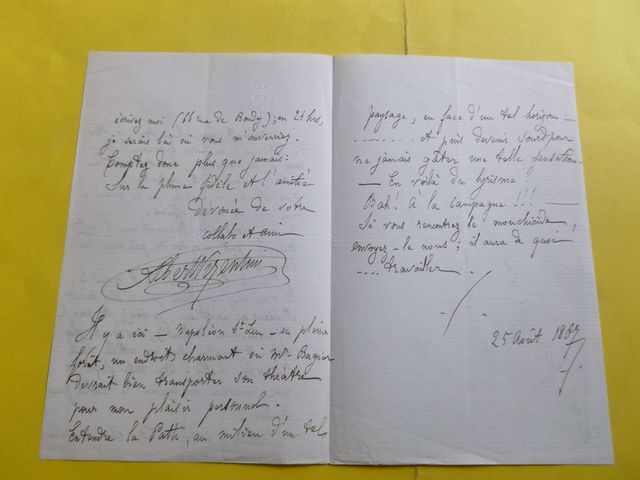 écrivez moi (66 rue de Bondy); en 24 hrs,
je serais là où vous m'enverriez.
Comptez donc plus que jamais:
Sur la plume fidèle et l'amitié
Dévouée de votre
collabo et ami
Albert
Il y a ici — Napoléon St Leu — en pleine
forêt, un endroit charmant où Mr Bagier
devrait bien transporter son théatre
pour mon plaisir personnel.
Entendre la Patti, au milieu d'un tel
paysage, en face d'un tel horizon —
....... et puis devenir sourd pour
ne jamais gâter une telle sensation —
— En voilà du lyrisme?
Bah! à la campagne!!! —
Si vous rencontrez le mouchicide,
envoyez-le nous; il aura de quoi
.... travailler.
25 Août